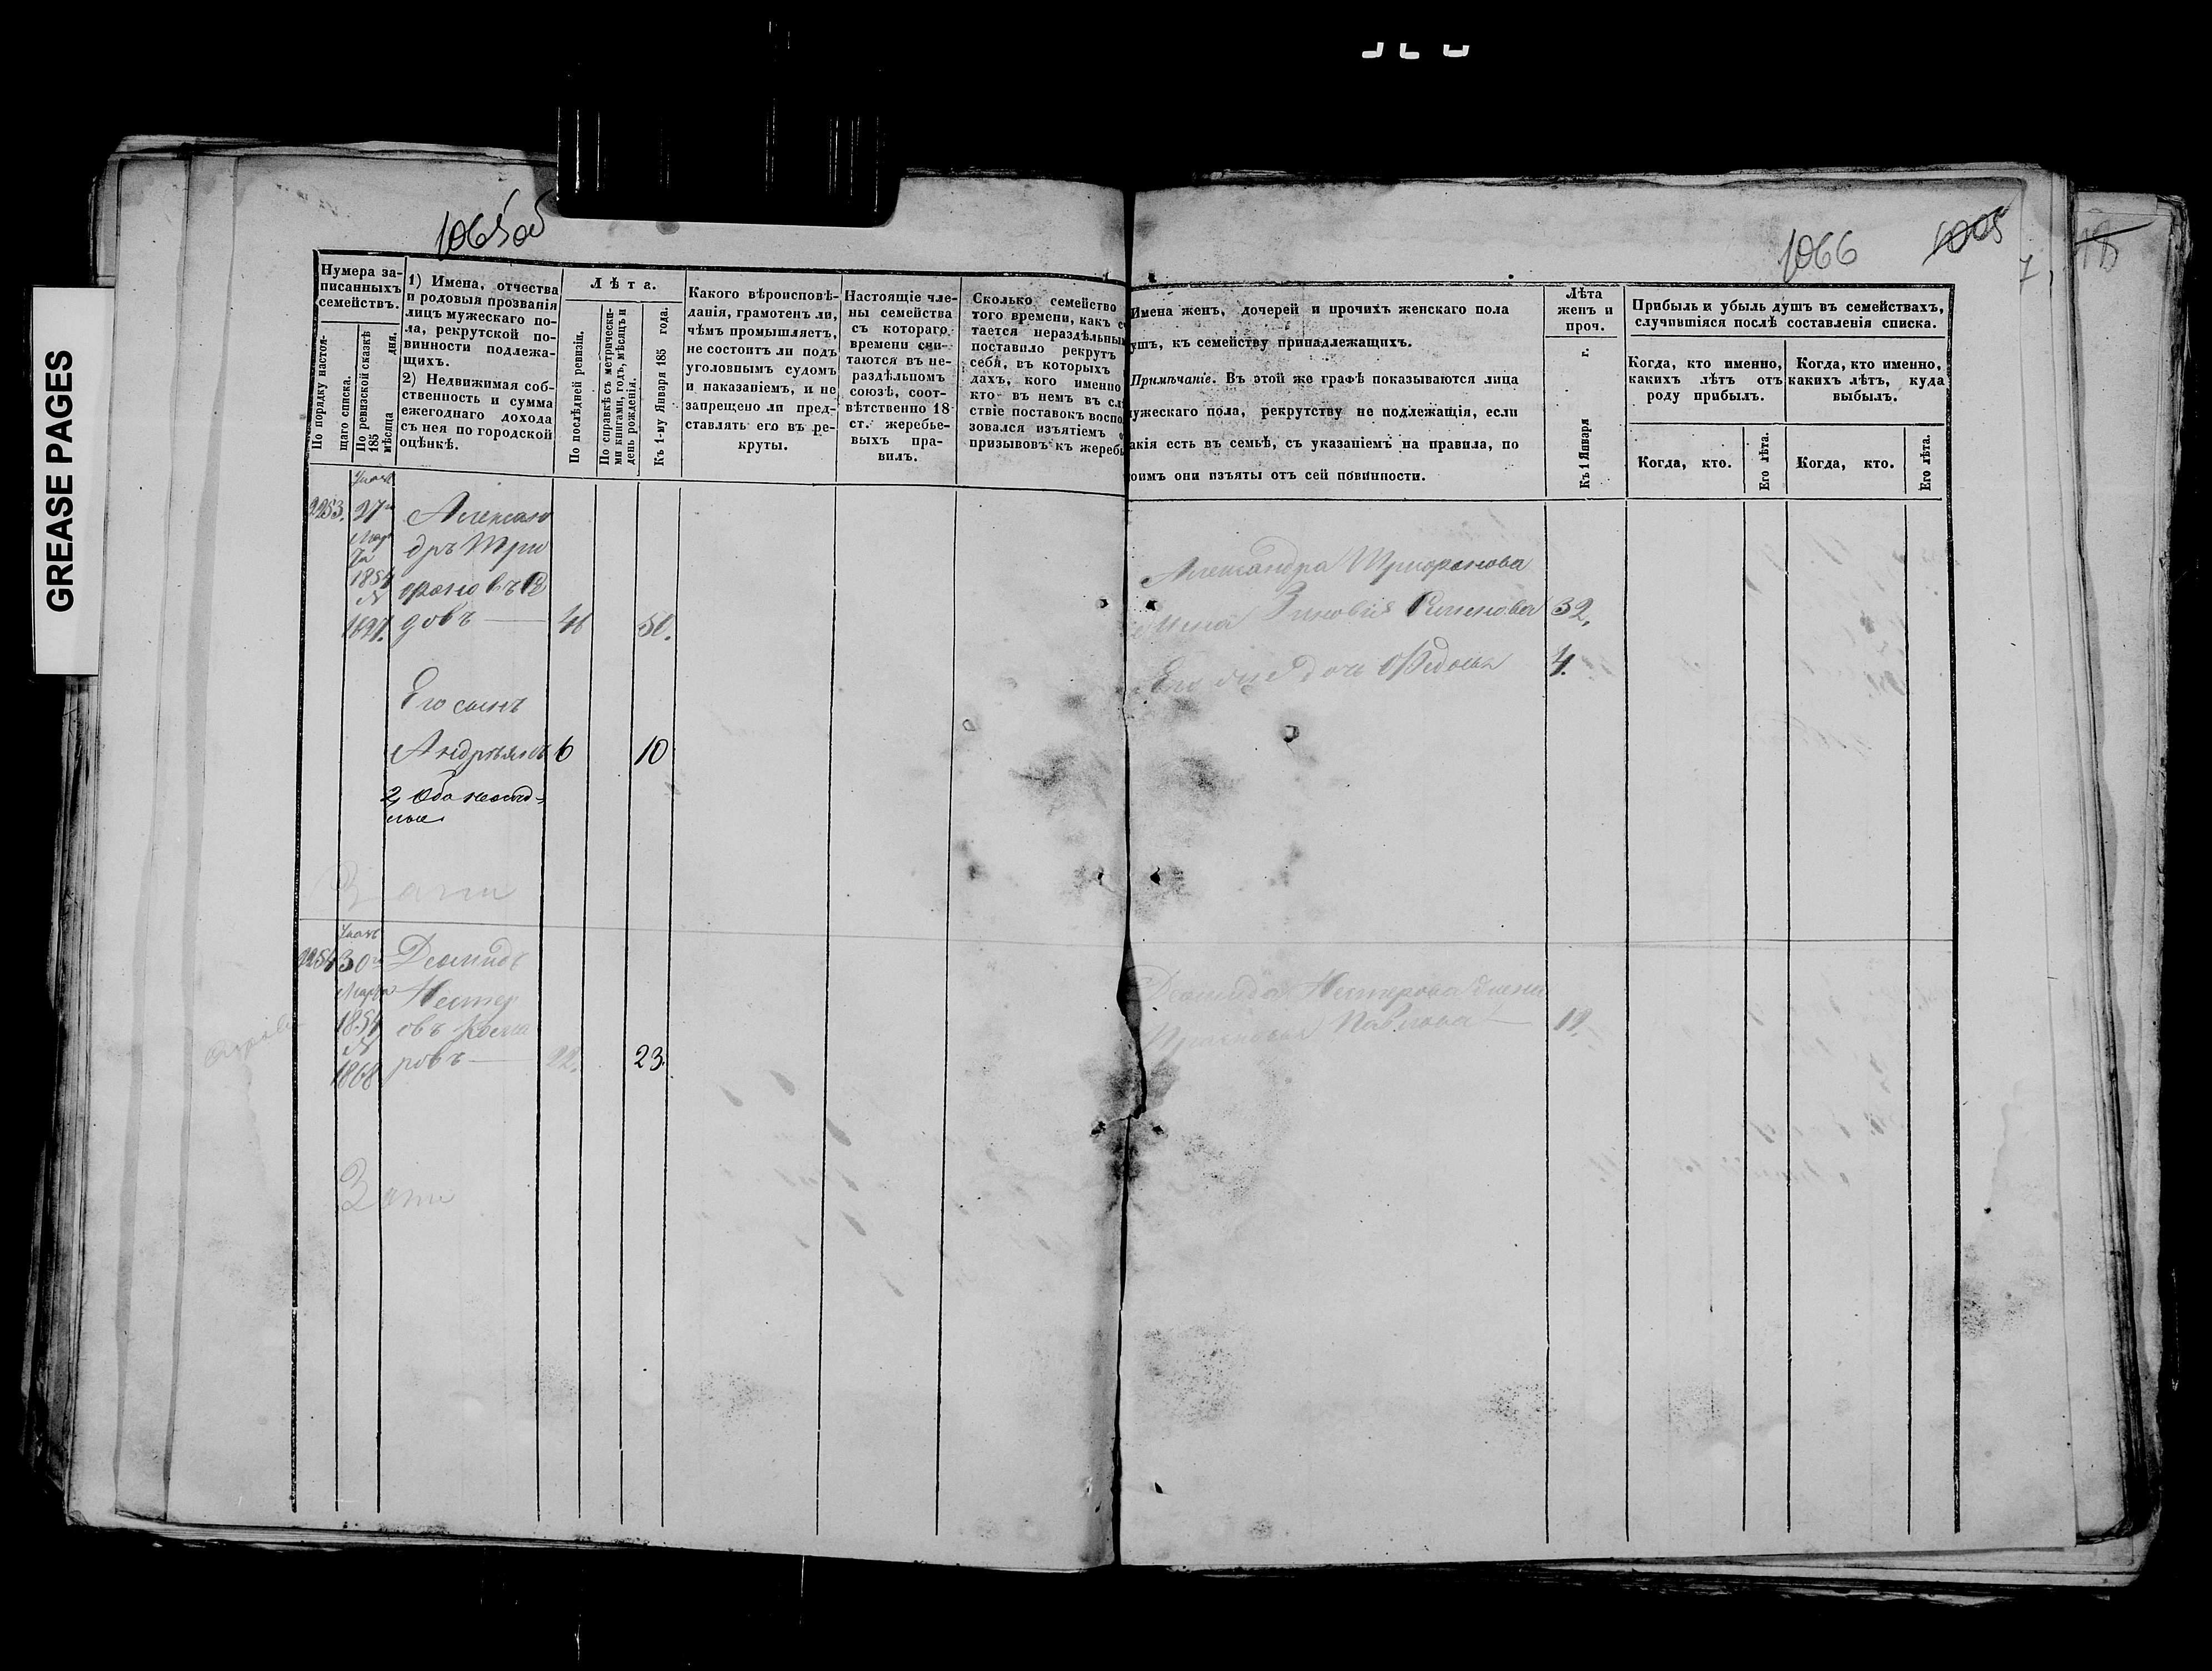 GREASE PAGES
1065об
1066
1005
Нумера записанныхъ семействъ.
По порядку настоящаго списка.
По ревизской сказкѣ 185 мѣсяца дня.
1) Имена, отчества
и родовыя прозванія
лицъ мужескаго по-
ла, рекрутской по-
винности подлежа-
щихъ.
2) Недвижимая соб-
ственность и сумма
ежегоднаго дохода
съ нея по городской
оцѣнкѣ.
Лѣта.
По послѣдней ревизіи.
По справкѣ съ метрически-
ми книгами, годъ, мѣсяцъ и
день рожденія.
Къ 1-му Января 185 года.
Какого вѣроисповѣ-
данія, грамотенъ ли,
чѣмъ промышляетъ,
не состоитъ ли подъ
уголовнымъ судомъ
и наказаніемъ, и не
запрещено ли пред-
ставлять его въ ре-
круты.
Настоящіе чле-
ны семейства
съ котораго
времени счи-
таются въ не-
раздѣльномъ
союзѣ, соот-
вѣтственно 18
ст. жеребье-
выхъ пра-
вилъ.
Сколько семейство
того времени, какъ с
тается нераздѣльны
поставило рекрутъ
себя, въ которыхъ
дахъ, кого именно
кто въ немъ въ сл
ствіе поставокъ воспо
зовался изъятіемъ
призывовъ къ жереб
Имена женъ, дочерей и прочихъ женскаго пола
ушъ, къ семейству принадлежащихъ.
Примѣчаніе. Въ этой же графѣ показываются лица
ужескаго пола, рекрутству не подлежащія, если
акія есть въ семьѣ, съ указаніемъ на правила, по
оимъ они изъяты отъ сей повинности.
Лѣта
женъ и
проч.
Къ 1 Января г.
Прибыль и убыль душъ въ семействахъ,
случившіяся послѣ составленія списка.
Когда, кто именно,
какихъ лѣтъ отъ
роду прибылъ.
Когда, кто именно,
какихъ лѣтъ, куда
выбылъ.
Когда, кто.
Его лѣта.
Когда, кто.
Его лѣта.
Указъ
2253. 27
Мар
та
1854
№
1697.
Алексан
дръ Три
фоновъ
довъ — 46 50.
Его сынъ
Андреянъ 6 10
2, Оба
Александра Трифонова
жена Зиновия Семенова 32,
Его дочь Федосья 4.
Указъ
2254 30
Марта
1854
№
1868
Демидъ
Нестер
овъ
ровъ — 22. 23.
Демида Нестерова жена
Прасковья Павлова — 19.